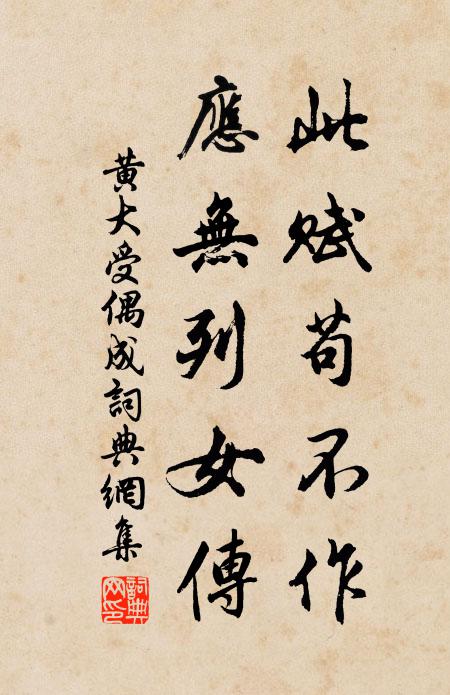 此賦苟不作
應無列女傳
黃大受偶成詞典網集
詞典網印